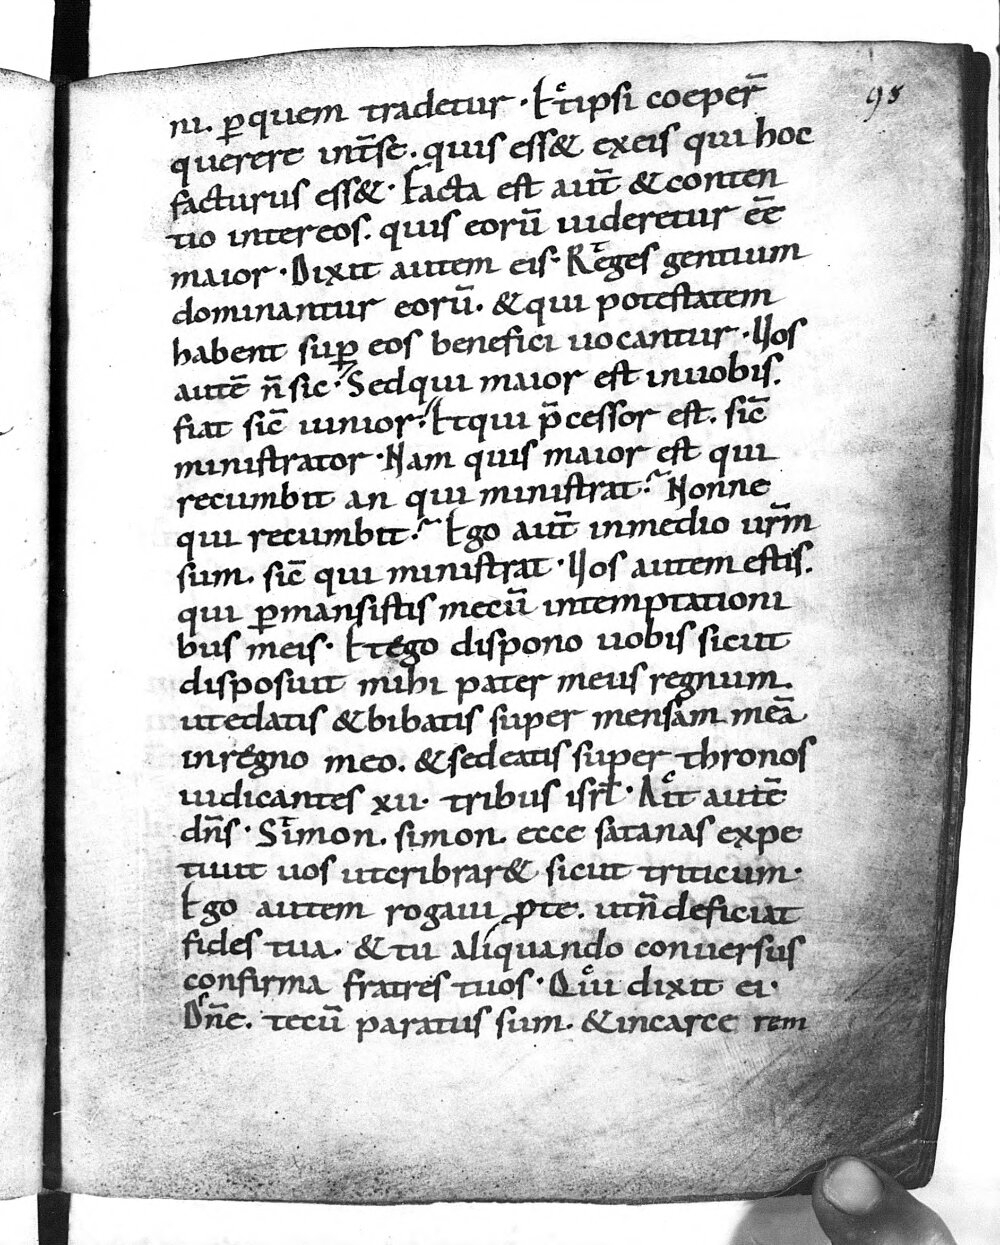 98
ni. ꝑquem tradetur · Etipsi coeper̄
querere int̄se. quis ess& exeis qui hoc
facturus ess& · Facta est aut̄ & conten
tio intereos. quis eorū uideretur eē
maior · Dixit autem eis · Reges gentium
dominantur eorū. & qui potestatem
habent suꝑ eos benefici uocantur · Uos
autē n̄ sic · Sedqui maior est inuobis.
fiat sic̄ iunior · Etqui p̄cessor est. sic̄
ministrator · Nam quis maior est qui
recumbit an qui ministrat · Nonne
qui recumbit · Ego aut̄ inmedio ur̄m
sum. sic̄ qui ministrat · Uos autem estis.
qui ꝑmansistis mecū intemptationi
bus meis · Etego dispono uobis sicut
disposuit mihi pater meus regnum.
utedatis & bibatis super mensam meā
inregno meo. & sedeatis super thronos
iudicantes xii · tribus isrł · Ait autē
dn̄s · Simon. simon. ecce satanas expe
tiuit uos utcribrar& sicut triticum ·
Ego autem rogaui ꝓte. utn̄deficiat
fides tua. & tu aliquando conuersus
confirma fratres tuos · Qui dixit ei ·
Dn̄e. tecū paratus sum. & incarce rem